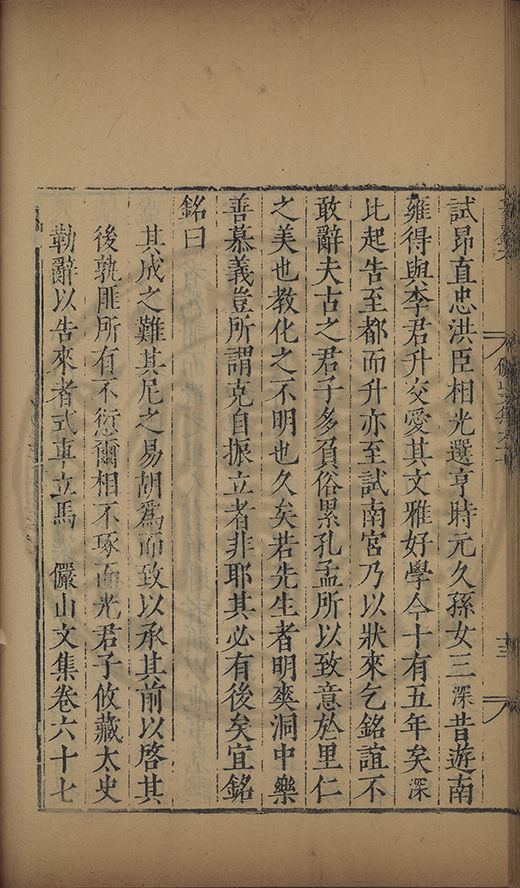 試昂直忠洪臣相光選亨時元久孫女三深昔遊南
雍得與李君升交愛其文雅好學今十有五年矣深
比起告至都而升亦至試南宮乃以狀來乞銘誼不
敢辭夫古之君子多負俗累孔孟所以致意於里仁
之美也教化之不明也久矣若先生者明爽洞中樂
善慕義豈所謂克自振立者非耶其必有後矣宜銘
銘曰
其成之難其㞐之易胡爲而致以承其前以啓其
後孰匪所有不愆爾相不琢而光君子攸藏太史
勒辭以告來者式車立馬
儼山文集卷六十七